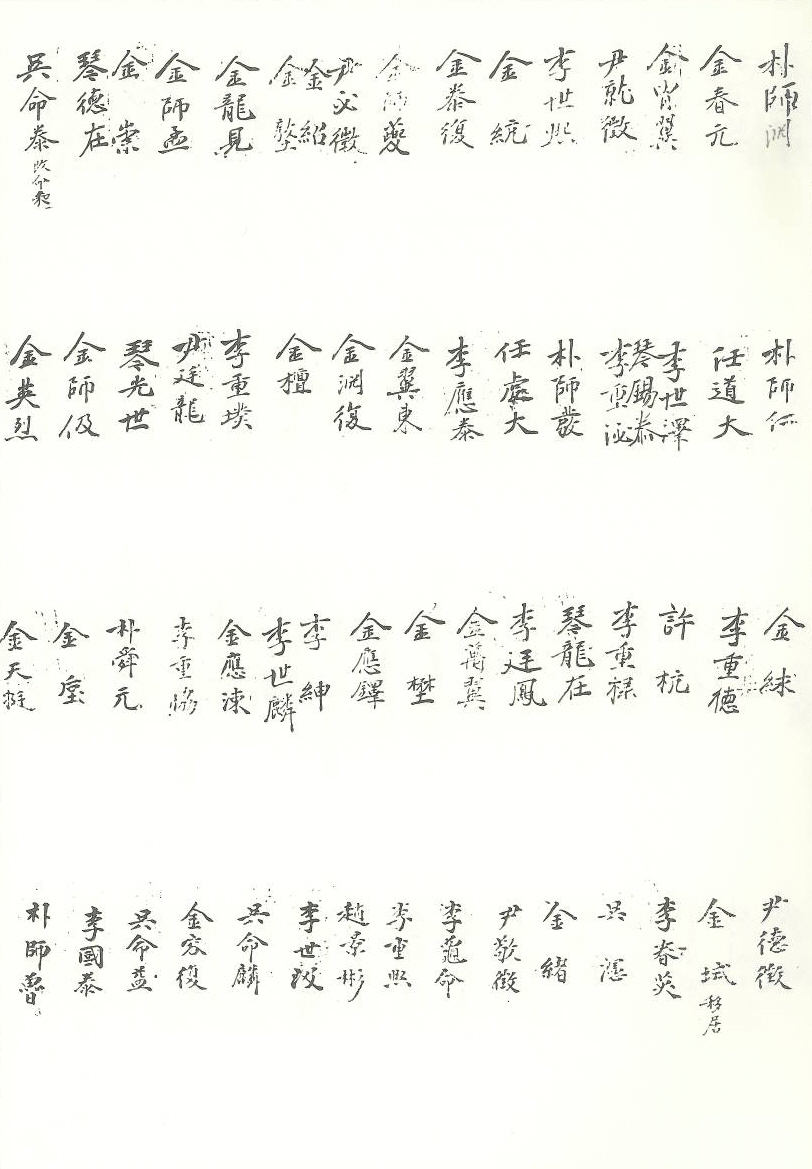 朴師洙
金春元
金胄翼
尹就徵
李世熙
金 統
金泰復
金師夔
尹必徵
金 紹
金 㙜
金龍見
金師孟
金 崇
琴德在
吳命泰 改命
朴師仁
任道大
李世澤
琴錫泰
李重泌
朴師嚴
任處大
李應泰
金翼東
金潤復
金 檀
李重璞
尹廷龍
琴光世
金師伋
金英烈
金 絿
李重德
許 杭
李重祿
琴龍在
李廷鳳
金萬翼
金 樊
金應鐸
李 紳
李世麟
金應涑
李重協
朴舜元
金 𡊠
金天挺
尹德徵
金 城 移居
李春英
吳 濅
金 緖
尹敬徵
李龜命
李重熙
趙景彬
李世玟
吳命麟
金宗復
吳命益
李國泰
朴師魯